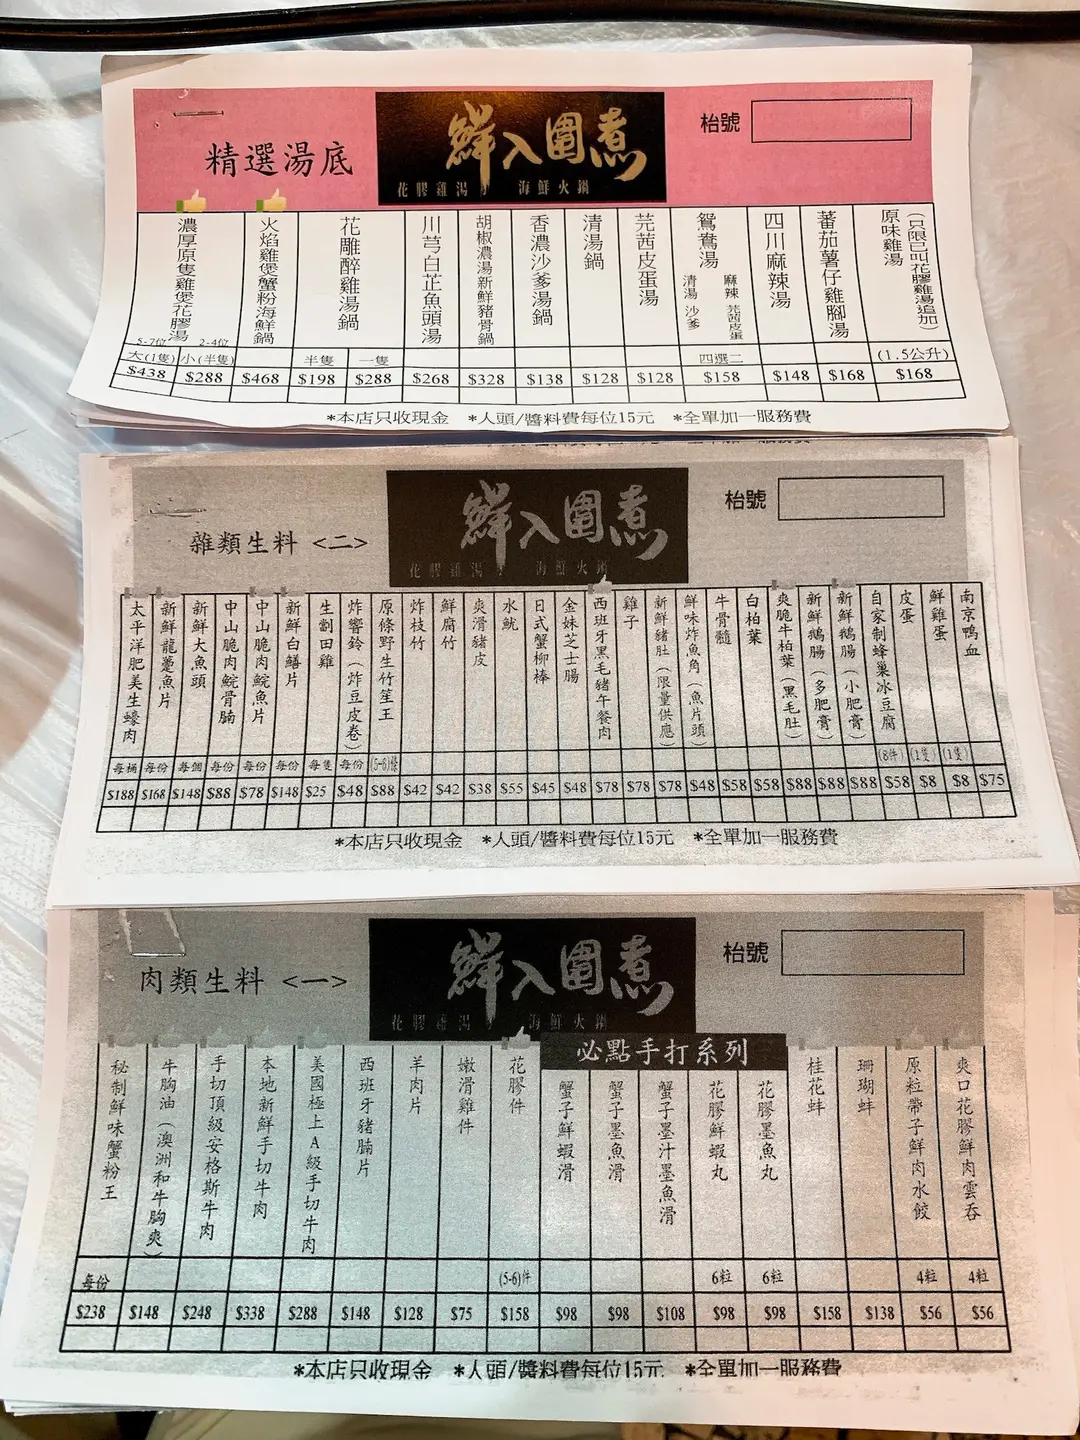 精選湯底
鮮入圍煮
花膠雞湯
海鮮火鍋
枱號
濃厚原隻雞煲花膠湯
5-7位
2-4位
大(1隻)
小(半隻)
$438
$288
火焰雞煲蟹粉海鮮鍋
$468
花雕醉雞湯鍋
半隻
一隻
$198
$288
川芎白芷魚頭湯
$268
胡椒濃湯新鮮豬骨鍋
$328
香濃沙爹湯鍋
$138
清湯鍋
$128
芫茜皮蛋湯
$128
鴛鴦湯
麻辣 芫茜皮蛋
清湯 沙爹
四選二
$158
四川麻辣湯
$148
蕃茄薯仔雞腳湯
$168
原味雞湯
(只限已叫花膠雞湯追加)
(1.5公升)
$168
*本店只收現金 *人頭/醬料費每位15元 *全單加一服務費
雜類生料 <二>
鮮入圍煮
花膠雞湯
海鮮火鍋
枱號
太平洋肥美生蠔肉
每桶
$188
新鮮龍躉魚片
每份
$168
新鮮大魚頭
每個
$148
中山脆肉鯇骨腩
每份
$88
中山脆肉鯇魚片
每份
$78
新鮮白鱔片
每份
$148
生劏田雞
每隻
$25
炸響鈴(炸豆皮卷)
每份
$48
原條野生竹笙王
(5-6)條
$88
炸枝竹
$42
鮮腐竹
$42
爽滑豬皮
$38
水魷
$55
日式蟹柳棒
$45
金妹芝士腸
$48
西班牙黑毛豬午餐肉
$78
雞子
$78
新鮮豬肚(限量供應)
$78
鮮味炸魚角(魚片頭)
$48
牛骨髓
$58
白柏葉
$58
爽脆牛柏葉(黑毛肚)
$88
新鮮鵝腸(多肥膏)
$88
新鮮鵝腸(小肥膏)
$88
自家制蜂巢冰豆腐
(8件)
$58
皮蛋
(1隻)
$8
鮮雞蛋
(1隻)
$8
南京鴨血
$75
*本店只收現金 *人頭/醬料費每位15元 *全單加一服務費
肉類生料 <一>
鮮入圍煮
花膠雞湯
海鮮火鍋
枱號
秘制鮮味蟹粉王
每份
$238
牛胸油(澳洲和牛胸爽)
$148
手切頂級安格斯牛肉
$248
本地新鮮手切牛肉
$338
美國極上A級手切牛肉
$288
西班牙豬腩片
$148
羊肉片
$128
嫩滑雞件
$75
花膠件
(5-6)件
$158
必點手打系列
蟹子鮮蝦滑
$98
蟹子墨魚滑
$98
蟹子墨汁墨魚滑
$108
花膠鮮蝦丸
6粒
$98
花膠墨魚丸
6粒
$98
桂花蚌
$158
珊瑚蚌
$138
原粒帶子鮮肉水餃
4粒
$56
爽口花膠鮮肉雲吞
4粒
$56
*本店只收現金 *人頭/醬料費每位15元 *全單加一服務費